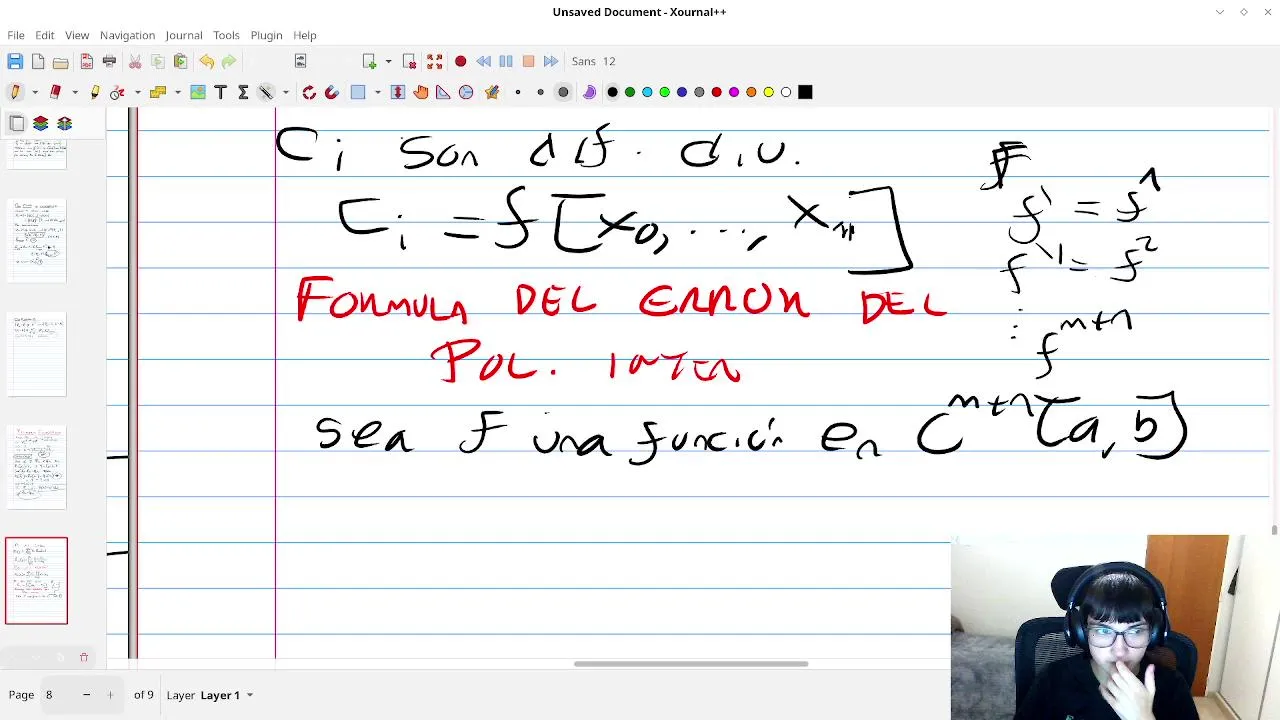 Unsaved Document - Xournal++
File Edit View Navigation Journal Tools Plugin Help
Sans 12
Ci son dif. div.
Ci = f[x0, ..., xn]
FORMULA DEL ERROR DEL
POL. INTER
sea f una función en C^n+1 [a, b]
F
f' = f^1
f'' = f^2
⋮
f^n+1
Page 8 of 9 Layer Layer 1